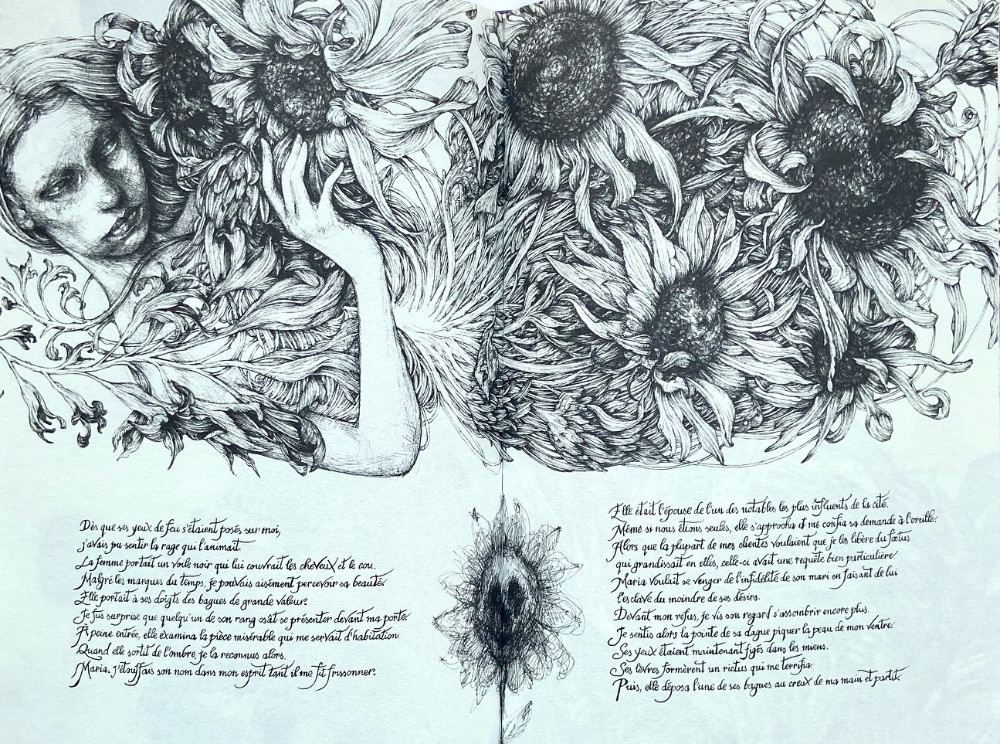 Dès que ses yeux de feu s'étaient posés sur moi,
j'avais pu sentir la rage qui l'animait.
La femme portait un voile noir qui lui couvrait les cheveux et le cou.
Malgré les marques du temps, je pouvais aisément percevoir sa beauté.
Elle portait à ses doigts des bagues de grande valeur.
Je fus surprise que quelqu'un de son rang osât se présenter devant ma porte.
À peine entrée, elle examina la pièce misérable qui me servait d'habitation.
Quand elle sortit de l'ombre, je la reconnus alors.
Maria. J'étouffais son nom dans mon esprit tant il me fit frissonner.
Elle était l'épouse de l'un des notables les plus influents de la cité.
Même si nous étions seules, elle s'approcha et me confia sa demande à l'oreille.
Alors que la plupart de mes clientes voulaient que je les libère du fœtus
qui grandissait en elles, celle-ci avait une requête bien particulière.
Maria voulait se venger de l'infidélité de son mari en faisant de lui
l'esclave du moindre de ses désirs.
Devant mon refus, je vis son regard s'assombrir encore plus.
Je sentis alors la pointe de sa dague piquer la peau de mon ventre.
Ses yeux étaient maintenant figés dans les miens.
Ses lèvres formèrent un rictus qui me terrifia.
Puis, elle déposa l'une de ses bagues au creux de ma main et partit.